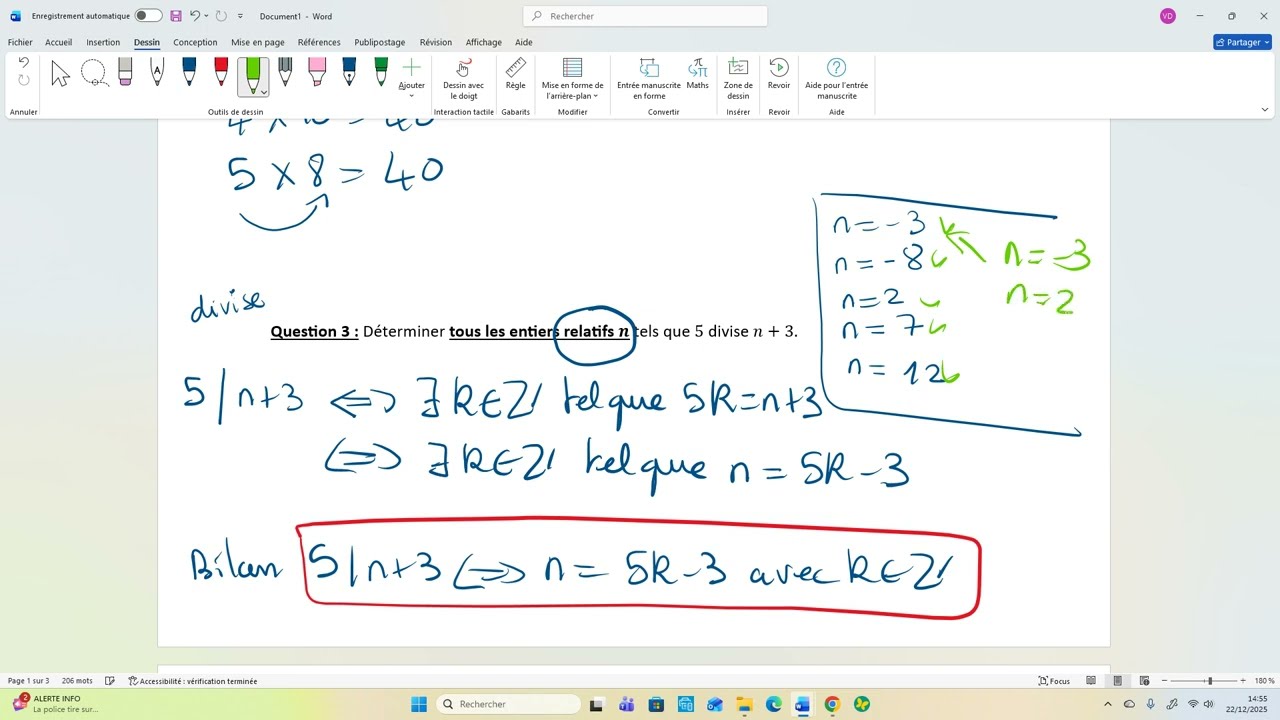 Enregistrement automatique
Document1 - Word
Rechercher
VD
Fichier Accueil Insertion Dessin Conception Mise en page Références Publipostage Révision Affichage Aide
Partager
Annuler
Outils de dessin
Ajouter
Dessin avec le doigt
Interaction tactile
Règle
Gabarits
Mise en forme de l'arrière-plan
Modifier
Entrée manuscrite en forme
Maths
Convertir
Zone de dessin
Insérer
Revoir
Revoir
Aide pour l'entrée manuscrite
Aide
4 × 10 = 40
5 × 8 = 40
n = -3
n = -8
n = 2
n = 7
n = 12
n = -3
n = 2
divise
Question 3 : Déterminer tous les entiers relatifs n tels que 5 divise n + 3.
5 | n+3 ⟺ ∃ k ∈ ℤ tel que 5k = n+3
⟺ ∃ k ∈ ℤ tel que n = 5k - 3
Bilan 5 | n+3 ⟺ n = 5k - 3 avec k ∈ ℤ
Page 1 sur 3 206 mots Accessibilité : vérification terminée
Focus
180 %
2
ALERTE INFO
La police tire sur...
Rechercher
14:55
22/12/2025